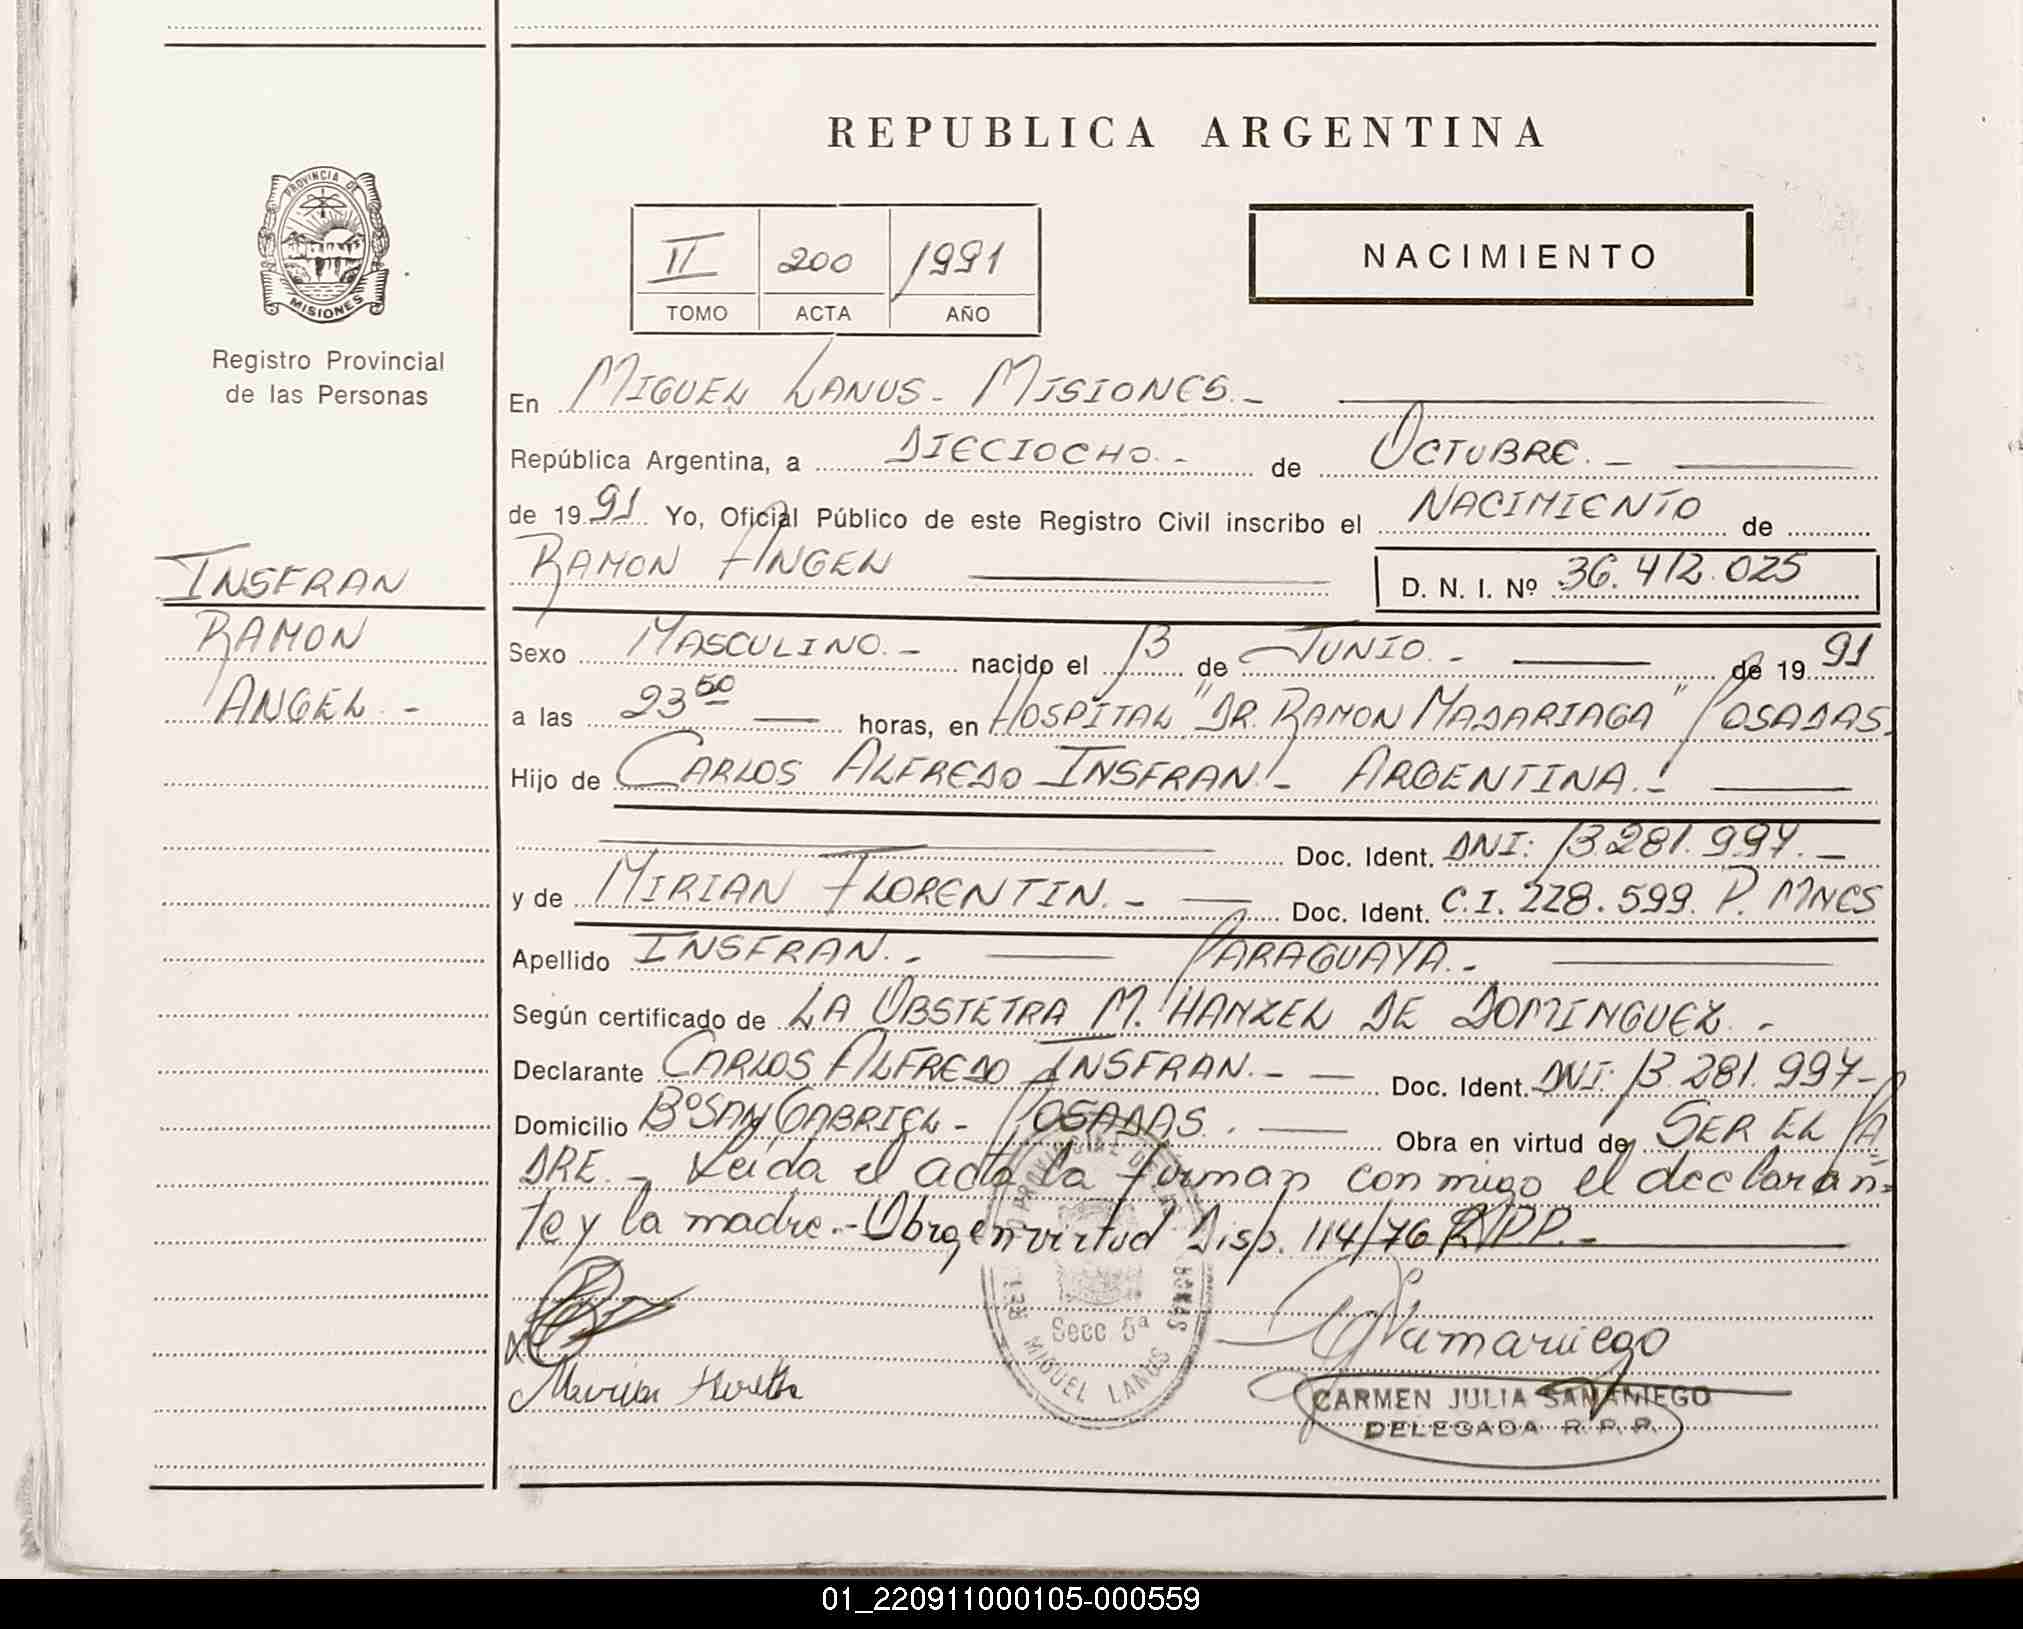 REPUBLICA ARGENTINA
PROVINCIA DE
MISIONES
Registro Provincial
de las Personas
II 200 1991
TOMO ACTA AÑO
NACIMIENTO
En MIGUEL LANUS - MISIONES.-
República Argentina, a DIECIOCHO.- de OCTUBRE.-
de 1991 Yo, Oficial Público de este Registro Civil inscribo el NACIMIENTO de
RAMON ANGEL D. N. I. Nº 36.412.025
INSFRAN
RAMON
ANGEL.-
Sexo MASCULINO.- nacido el 13 de JUNIO.- de 1991
a las 23 50 horas, en HOSPITAL "DR. RAMON MADARIAGA" POSADAS.
Hijo de CARLOS ALFREDO INSFRAN.- ARGENTINA.-
Doc. Ident. DNI: 13.281.997.-
y de MIRIAN FLORENTIN.- Doc. Ident. C.I. 228.599. P. MNES
Apellido INSFRAN.- PARAGUAYA.-
Según certificado de LA OBSTETRA M. HANZEL DE DOMINGUEZ.-
Declarante CARLOS ALFREDO INSFRAN.- Doc. Ident. DNI: 13.281.997-
Domicilio Bº SAN GABRIEL - POSADAS. Obra en virtud de SER EL PA
DRE.- Leida el acta la firman conmigo el declaran=
te y la madre.- Obra en virtud Disp. 114/76 RPP.-
Secc 5ª
MIGUEL LANUS
Samaniego
CARMEN JULIA SAMANIEGO
DELEGADA R. P. P.
01_220911000105-000559